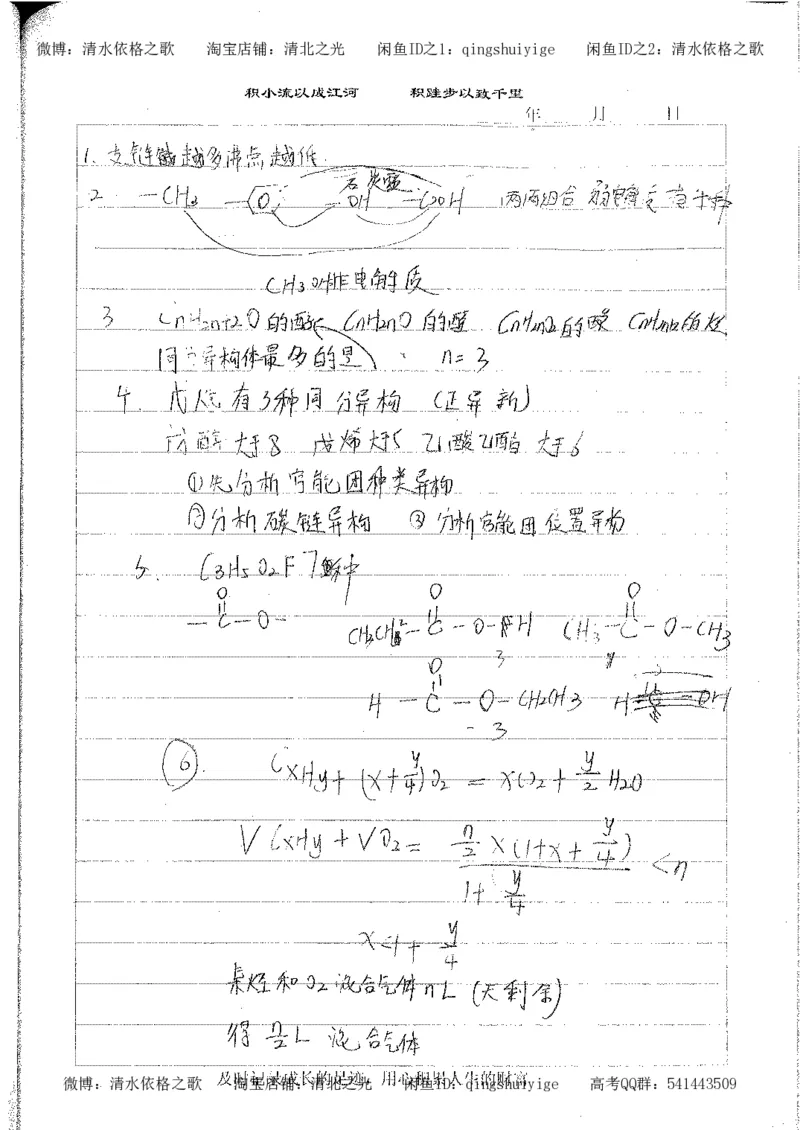 微博：清水依格之歌 淘宝店铺：清北之光 闲鱼ID之1：qingshuiyige 闲鱼ID之2：清水依格之歌
积小流以成江河 积跬步以致千里
年 月 日
1. 支链越多沸点越低.
石炭酸
2 —CH3 —OH —COOH 两两组合
CH3OH非电解质
3 CnH2n+2O的醇 CnH2nO的醛 CnH2nO2的酸
同分异构体最多的是 n=3
4. 戊烷有3种同分异构 (正异新)
戊醇大于8 戊烯大于5 乙酸乙酯大于6
①先分析官能团种类异构
②分析碳链异构 ③分析官能团位置异构
5. C3H5O2F 7种
O O O
—C—O— CH2CH2—C—O—H CH3—C—O—CH3
3
O
H—C—O—CH2CH3
3
⑥. CxHy+(x+y/4)O2 = xCO2+y/2 H2O
VCxHy+VO2= n/2 ×(1+x+y/4) / 1+y/4 <n
x<1+y/4
某烃和O2混合气体nL (无剩余)
得n/2L 混合气体
及时记录成长的足迹，用心积累人生的财富
微博：清水依格之歌 淘宝店铺：清北之光 闲鱼ID：qingshuiyige 高考QQ群：541443509